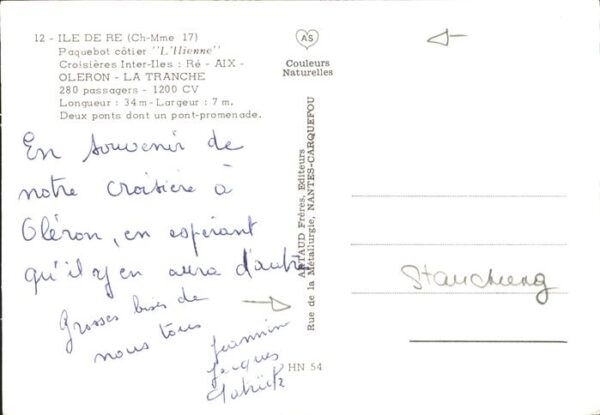 12 - ILE DE RE (Ch-Mme 17)
Paquebot côtier "L'Ilienne"
Croisières Inter-Iles : Ré - AIX -
OLERON - LA TRANCHE
280 passagers - 1200 CV
Longueur : 34 m - Largeur : 7 m.
Deux ponts dont un pont-promenade.
En souvenir de
notre croisière à
Oléron, en espérant
qu'il y en aura d'autres
Grosses bises de
nous tous
Jeannine
Jacques
AS
Couleurs
Naturelles
ARTAUD Frères, Editeurs
Rue de la Métallurgie, NANTES-CARQUEFOU
HN 54